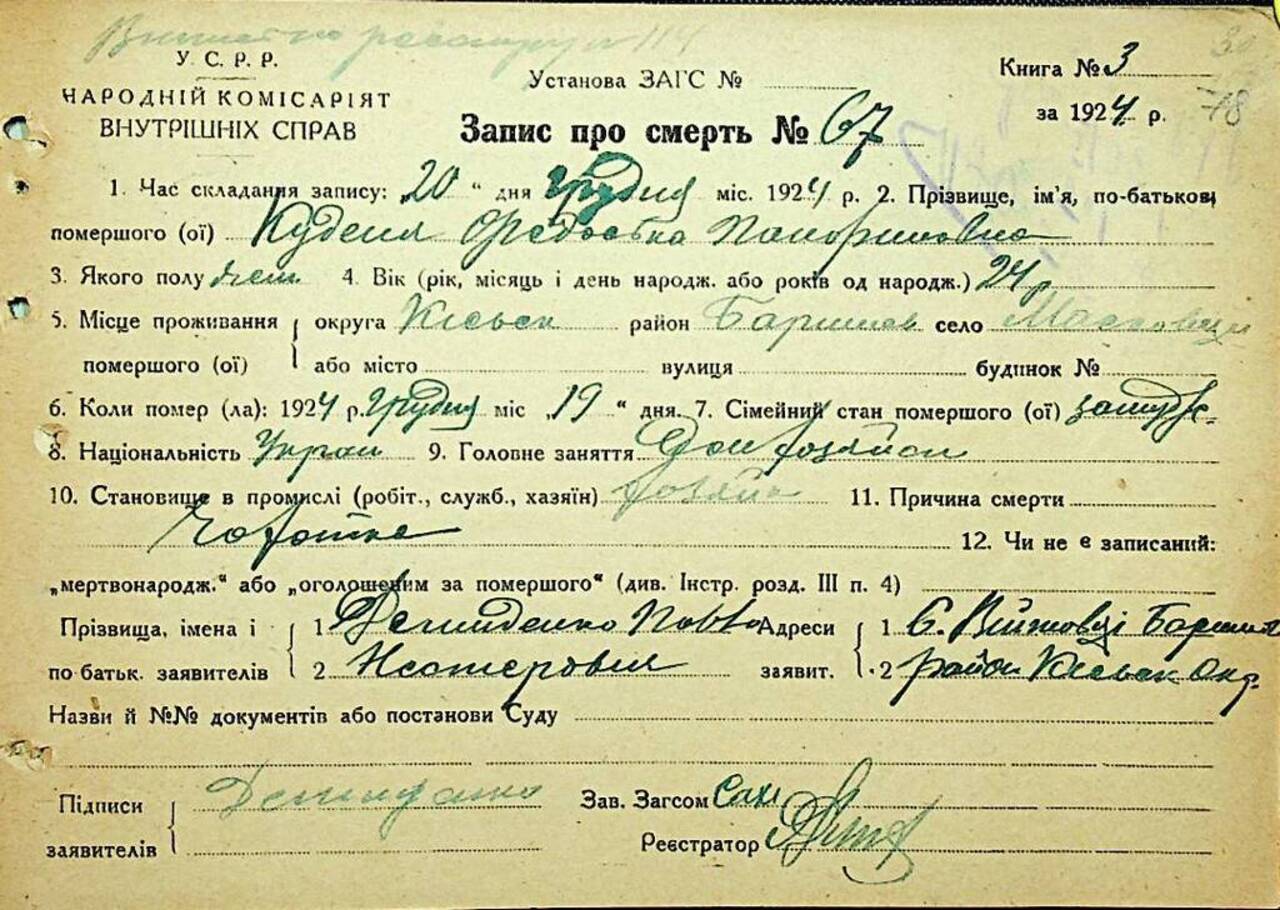 У. С. Р. Р.
НАРОДНІЙ КОМІСАРІЯТ
ВНУТРІШНІХ СПРАВ
Установа ЗАГС №
Книга № 3
за 1924 р.
78
Запис про смерть № 67
1. Час складання запису: „20“ дня грудня міс. 1924 р. 2. Прізвище, ім'я, по-батькові
помершого (ої)
3. Якого полу жен 4. Вік (рік, місяць і день народж. або років од народж.) 24 р
5. Місце проживання округа Київськ район Баришев село
помершого (ої) або місто вулиця будинок №
6. Коли помер (ла): 1924 р. грудня міс „19“ дня. 7. Сімейний стан помершого (ої) замуж.
8. Національність Украп 9. Головне заняття Дом хозяйка
10. Становище в промислі (робіт., служб., хазяїн) хозяйк 11. Причина смерти
Чахотка 12. Чи не є записаний:
„мертвонародж.“ або „оголошеним за помершого“ (див. Інстр. розд. III п. 4)
Прізвища, імена і 1 Демиденко Павло Адреси 1 С. Війтовці Баришев
по батьк. заявителів 2 Нестерович заявит. 2 район Київськ Окр.
Назви й №№ документів або постанови Суду
Підписи Демиденко Зав. Загсом
заявителів Реєстратор